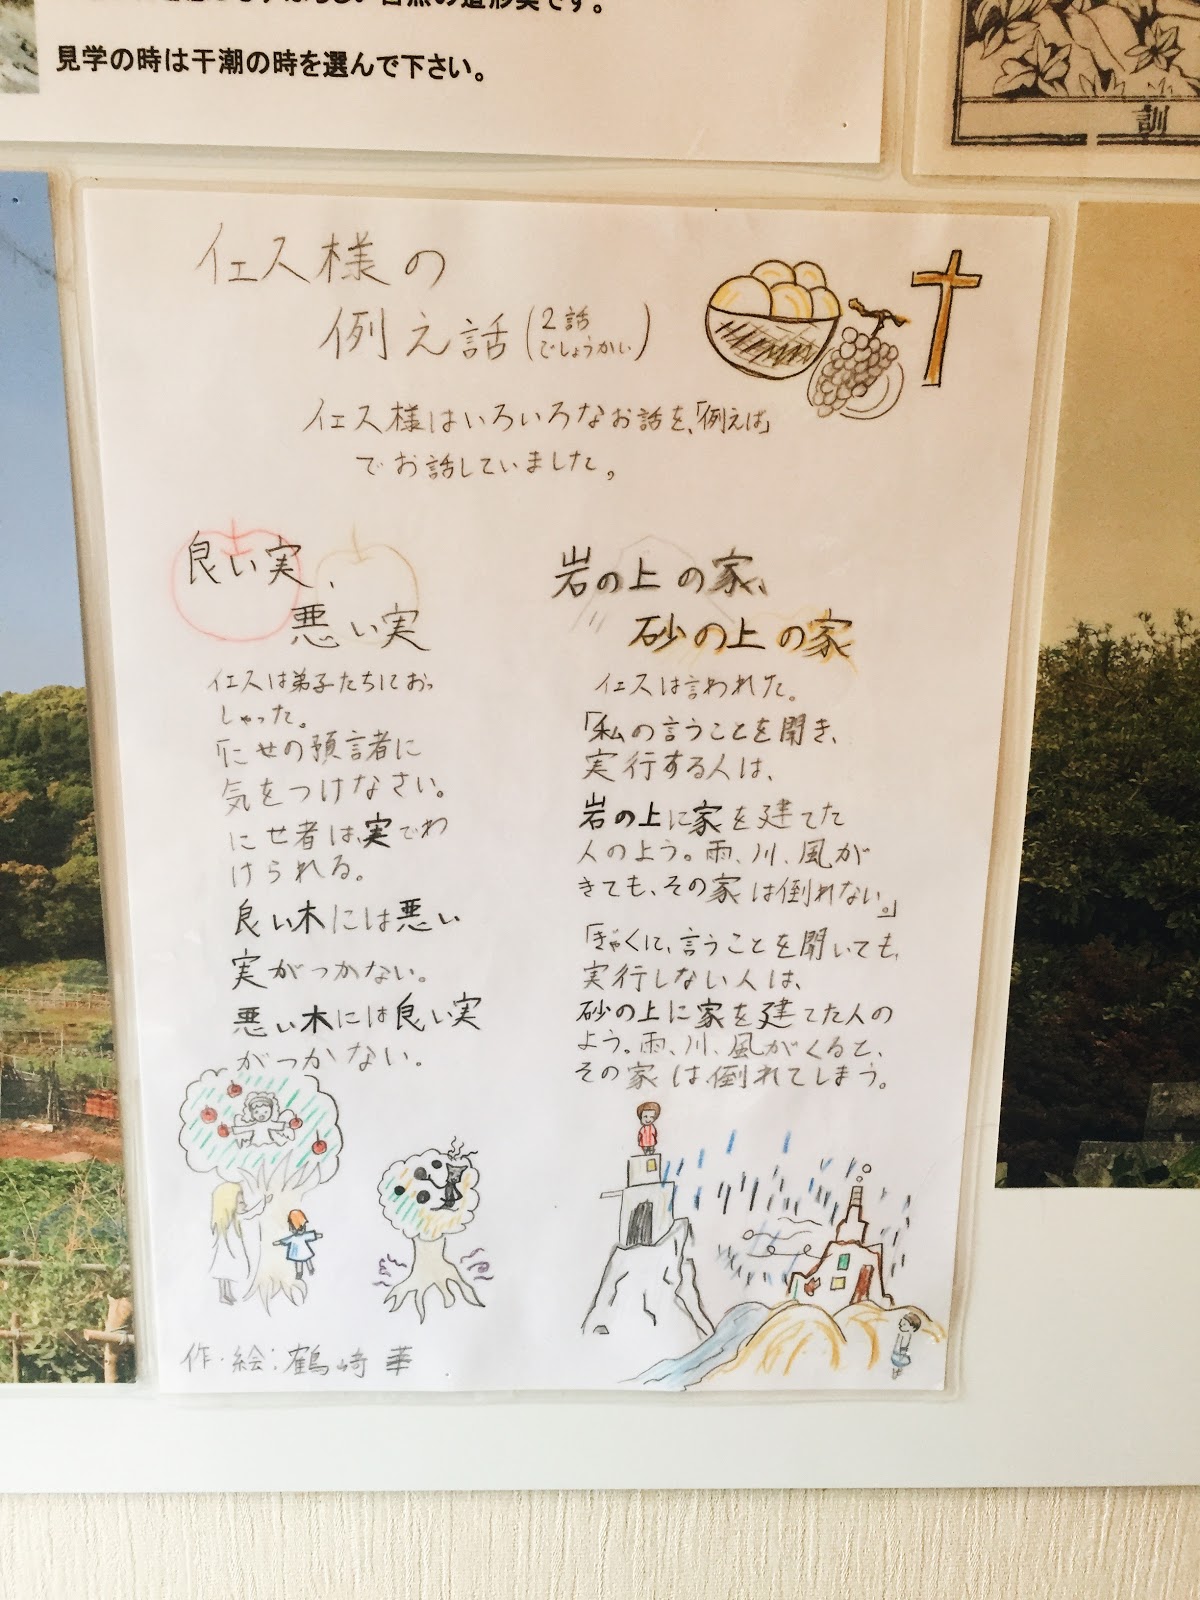 自然の造形美です。
見学の時は干潮の時を選んで下さい。
訓
イエス様の
例え話(2話でしょうかい)
イエス様はいろいろなお話を、「例えば」
でお話していました。
良い実、
悪い実
イエスは弟子たちにおっ
しゃった。
「にせの預言者に
気をつけなさい。
にせ者は、実でわ
けられる。
良い木には悪い
実がつかない。
悪い木には良い実
がつかない。
岩の上の家、
砂の上の家
イエスは言われた。
「私の言うことを聞き、
実行する人は、
岩の上に家を建てた
人のよう。雨、川、風が
きても、その家は倒れない。」
「ぎゃくに、言うことを聞いても、
実行しない人は、
砂の上に家を建てた人の
よう。雨、川、風がくると、
その家は倒れてしまう。
作・絵:鶴崎 華